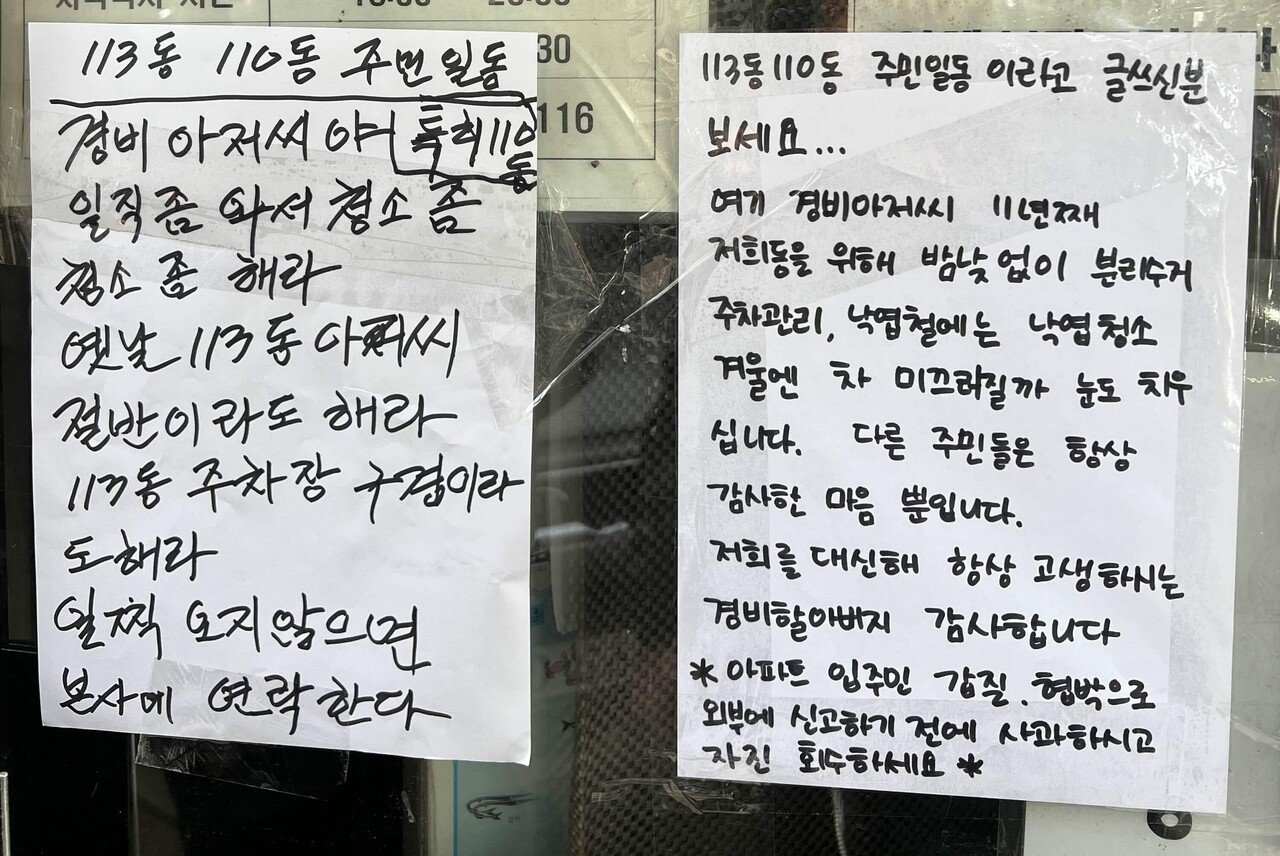 113동 110동 주민일동
경비 아저씨 야 특히110
동
일직좀 와서 청소 좀
청소 좀 해라
옛날 113동 아저씨
절반이라도 해라
113동 주차장 구경이라
도해라
일찍 오지않으면
본사에 연락한다
30
116
113동110동 주민일동이라고 글쓰신분
보세요...
여기 경비아저씨 11년째
저희동을 위해 밤낮없이 분리수거
주차관리, 낙엽철에는 낙엽청소
겨울엔 차 미끄러질까 눈도 치우
십니다. 다른 주민들은 항상
감사한 마음 뿐입니다.
저희를 대신해 항상 고생하시는
경비할아버지 감사합니다
* 아파트 입주민 갑질.협박으로
외부에 신고하기 전에 사과하시고
자진 회수하세요 *